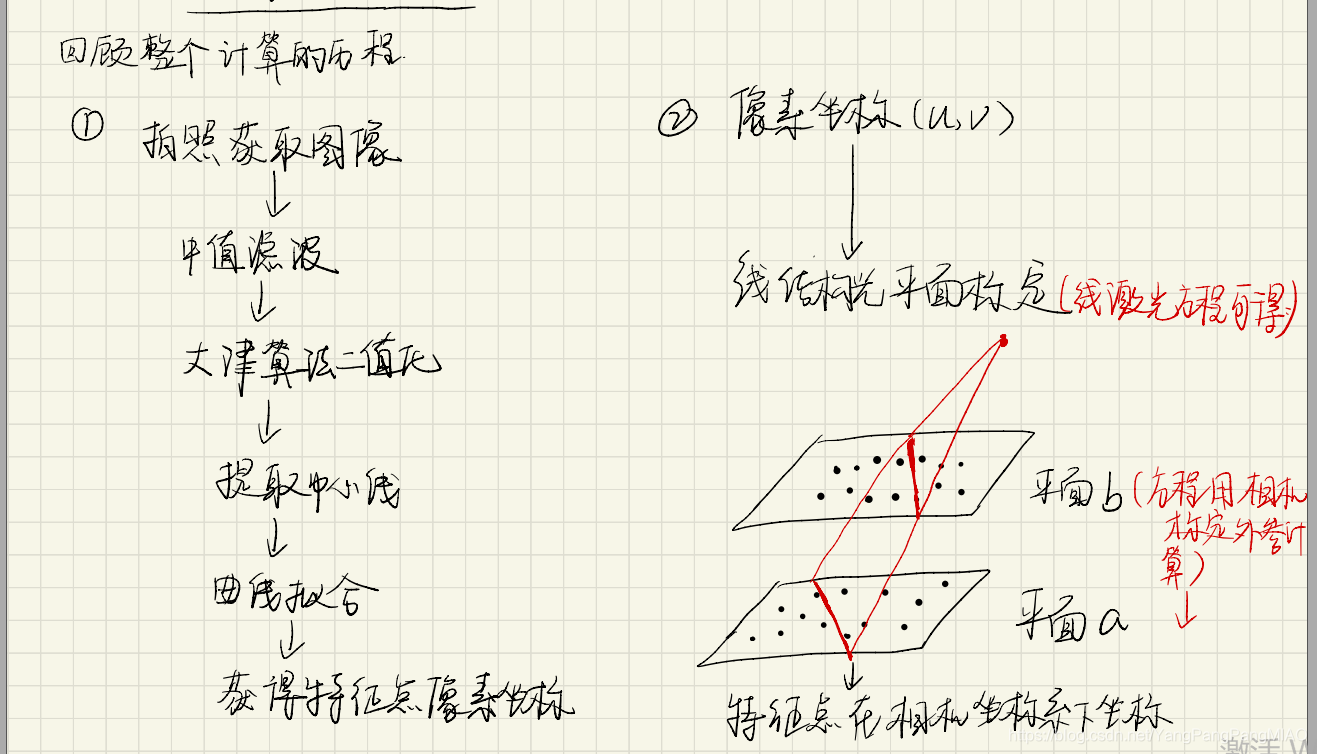 回顾整个计算的历程
① 拍照获取图像
↓
中值滤波
↓
大津算法二值化
↓
提取中心线
↓
曲线拟合
↓
获得特征点像素坐标
② 像素坐标(u,v)
↓
线结构光平面标定(线激光方程可得)
平面b(方程用相机
标定外参计
算)
↓
平面a
↓
特征点在相机坐标系下坐标
https://blog.csdn.net/YangPangPangMIAO
激活 W